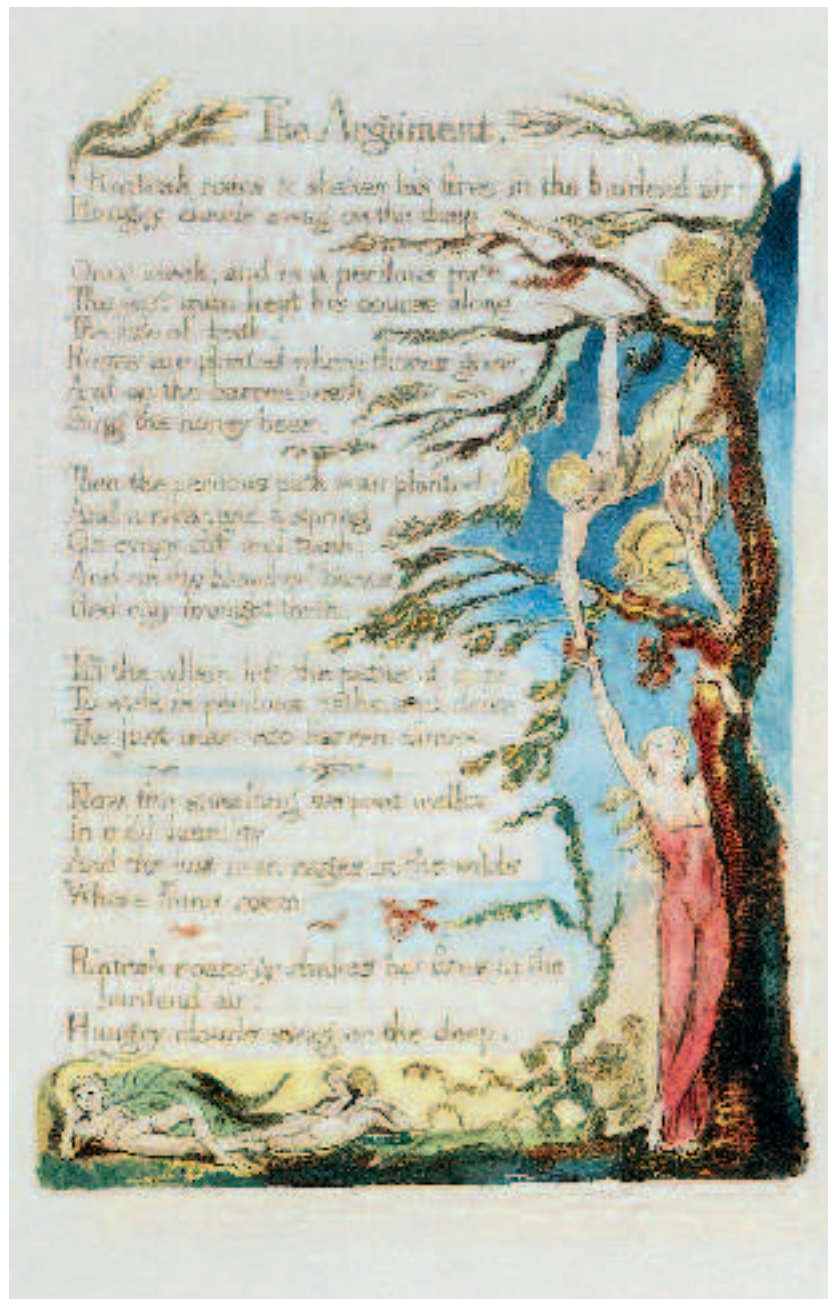 The Argument.
Rintrah roars & shakes his fires in the burdend air;
Hungry clouds swag on the deep
Once meek, and in a perilous path,
The just man kept his course along
The vale of death.
Roses are planted where thorns grow,
And on the barren heath
Sing the honey bees.
Then the perilous path was planted:
And a river, and a spring
On every cliff and tomb;
And on the bleached bones
Red clay brought forth.
Till the villain left the paths of ease,
To walk in perilous paths, and drive
The just man into barren climes.
Now the sneaking serpent walks
In mild humility.
And the just man rages in the wilds
Where lions roam.
Rintrah roars & shakes his fires in the
burdend air;
Hungry clouds swag on the deep.